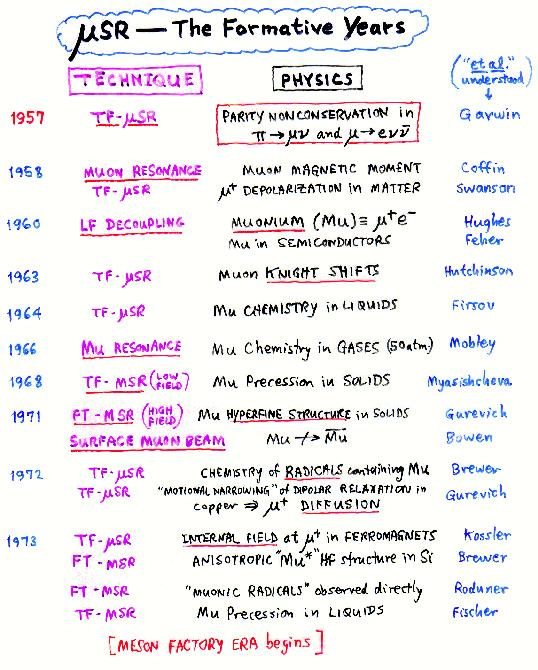 μSR — The Formative Years
TECHNIQUE PHYSICS ("et al." understood)
1957 TF-μSR PARITY NONCONSERVATION in Garwin
π→μν and μ→eνν̄
1958 MUON RESONANCE MUON MAGNETIC MOMENT Coffin
TF-μSR μ⁺ DEPOLARIZATION in MATTER Swanson
1960 LF DECOUPLING MUONIUM (Mu) ≡ μ⁺e⁻ Hughes
Mu in SEMICONDUCTORS Feher
1963 TF-μSR Muon KNIGHT SHIFTS Hutchinson
1964 TF-μSR Mu CHEMISTRY in LIQUIDS Firsov
1966 Mu RESONANCE Mu Chemistry in GASES (50atm.) Mobley
1968 TF-MSR (LOW FIELD) Mu Precession in SOLIDS Myasishcheva
1971 FT-MSR (HIGH FIELD) Mu HYPERFINE STRUCTURE in SOLIDS Gurevich
SURFACE MUON BEAM Mu ↛ M̅u̅ Bowen
1972 TF-μSR CHEMISTRY of RADICALS containing Mu Brewer
TF-μSR "MOTIONAL NARROWING" of DIPOLAR RELAXATION in Gurevich
copper ⇒ μ⁺ DIFFUSION
1973 TF-μSR INTERNAL FIELD at μ⁺ in FERROMAGNETS Kossler
FT-MSR ANISOTROPIC "Mu*" HF structure in Si Brewer
FT-MSR "MUONIC RADICALS" observed directly Roduner
TF-MSR Mu Precession in LIQUIDS Fischer
[MESON FACTORY ERA begins]